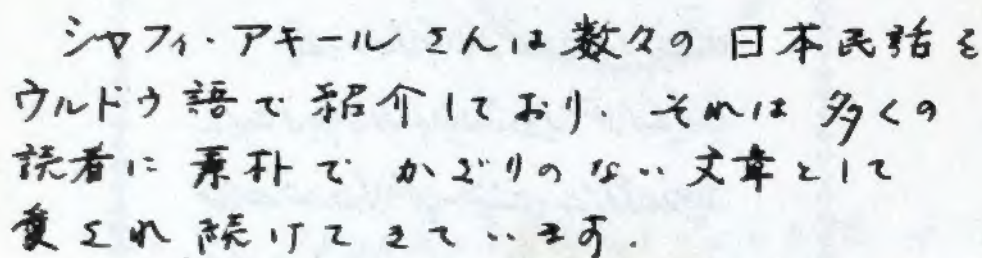 シャフィ・アキールさんは数々の日本民話を
ウルドゥ語で紹介しており、それは多くの
読者に素朴でかざりのない文章として
愛され続けてきています.